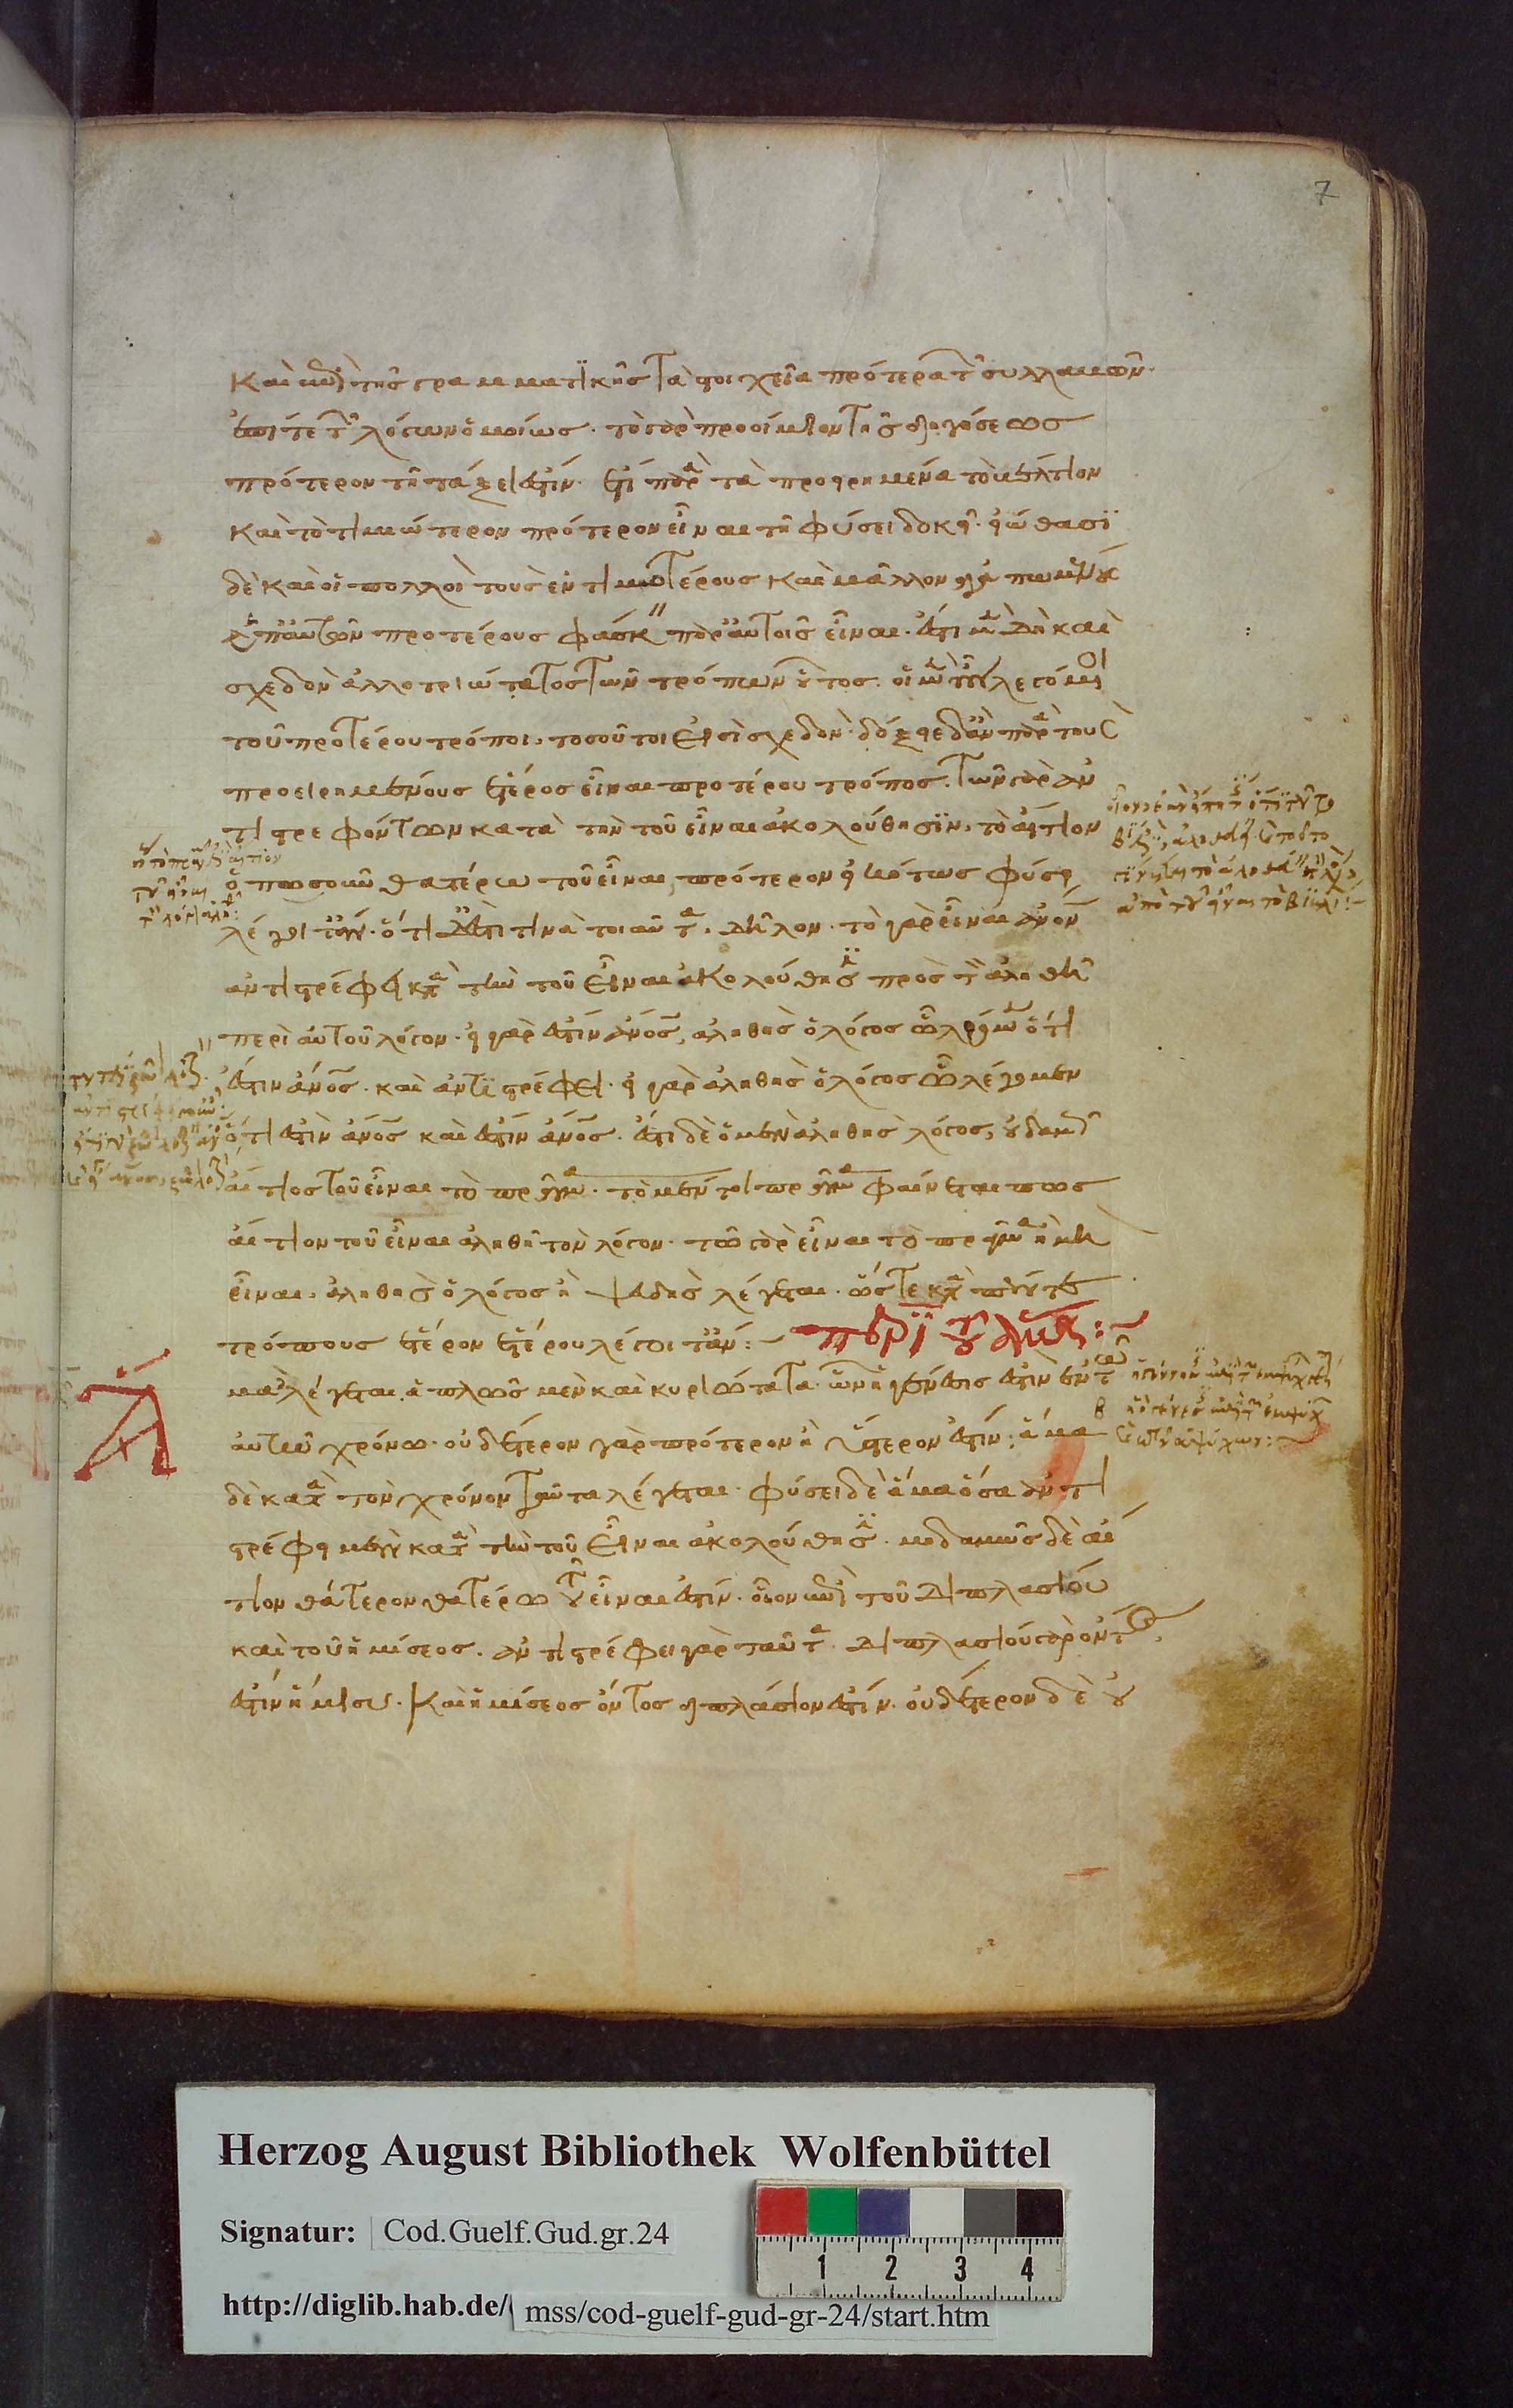 7
καὶ ἐπὶ τῆς γραμματικῆς τὰ στοιχεῖα πρότερα τῶν συλλαβῶν.
ἐπί τε τῶν λόγων ὁμοίως. τὸ γὰρ προοίμιον τῆς διηγήσεως
πρότερον τῇ τάξει ἐστίν. ἔτι παρὰ τὰ προειρημένα τὸ βέλτιον
καὶ τὸ τιμιώτερον πρότερον εἶναι τῇ φύσει δοκεῖ. εἰώθασι
δὲ καὶ οἱ πολλοὶ τοὺς ἐντιμοτέρους καὶ μᾶλλον ἀγαπωμένους
ὑπ' αὐτῶν προτέρους φάσκειν παρ' αὐτοῖς εἶναι. ἔστι μὲν δὴ καὶ
σχεδὸν ἀλλοτριώτατος τῶν τρόπων οὗτος. οἱ μὲν οὖν λεγόμενοι
τοῦ προτέρου τρόποι, τοσοῦτοι εἰσὶ σχεδόν. δόξειε δ' ἂν παρὰ τοὺς
προειρημένους ἕτερος εἶναι προτέρου τρόπος. τῶν γὰρ ἀν
τιστρεφόντων κατὰ τὴν τοῦ εἶναι ἀκολούθησιν, τὸ αἴτιον
ὁπωσοῦν θατέρῳ τοῦ εἶναι, πρότερον εἰκότως φύσει
λέγοιτ' ἄν. ὅτι δ' ἔστι τινὰ τοιαῦτα, δῆλον. τὸ γὰρ εἶναι ἄνον
ἀντιστρέφει κατὰ τὴν τοῦ εἶναι ἀκολούθησιν πρὸς τὸν ἀληθῆ
περὶ αὐτοῦ λόγον. εἰ γὰρ ἔστιν ἄνος, ἀληθὴς ὁ λόγος ᾧ λέγομεν ὅτι
ἔστιν ἄνος. καὶ ἀντιστρέφει. εἰ γὰρ ἀληθὴς ὁ λόγος ᾧ λέγομεν
ὅτι ἔστιν ἄνος καὶ ἔστιν ἄνος. ἔστι δὲ ὁ μὲν ἀληθὴς λόγος, οὐδαμῶς
αἴτιος τοῦ εἶναι τὸ πρᾶγμα. τὸ μέντοι πρᾶγμα φαίνεταί πως
αἴτιον τοῦ εἶναι ἀληθῆ τὸν λόγον. τῷ γὰρ εἶναι τὸ πρᾶγμα ἢ μὴ
εἶναι, ἀληθὴς ὁ λόγος ἢ ψευδὴς λέγεται. ὥστε κατὰ πέντε
τρόπους ἕτερον ἑτέρου λέγοιτ' ἄν:~ περὶ τοῦ ἅμα:~
Ἅμα λέγεται ἁπλῶς μὲν καὶ κυριώτατα. ὧν ἡ γένεσίς ἐστιν ἐν τῷ
αὐτῷ χρόνῳ. οὐδέτερον γὰρ πρότερον ἢ ὕστερόν ἐστιν. ἅμα
δὲ κατὰ τὸν χρόνον ταῦτα λέγεται. φύσει δὲ ἅμα ὅσα ἀντι
στρέφει μὲν κατὰ τὴν τοῦ εἶναι ἀκολούθησιν. μηδαμῶς δὲ αἴ
τιον θάτερον θατέρῳ τοῦ εἶναί ἐστιν. οἷον ἐπὶ τοῦ διπλασίου
καὶ τοῦ ἡμίσεος. ἀντιστρέφει γὰρ ταῦτα. διπλασίου γὰρ ὄντος,
ἐστὶν ἥμισυ. καὶ ἡμίσεος ὄντος διπλάσιόν ἐστιν. οὐδέτερον δὲ οὐ
Herzog August Bibliothek Wolfenbüttel
Signatur: Cod.Guelf.Gud.gr.24
http://diglib.hab.de/ mss/cod-guelf-gud-gr-24/start.htm
1 2 3 4